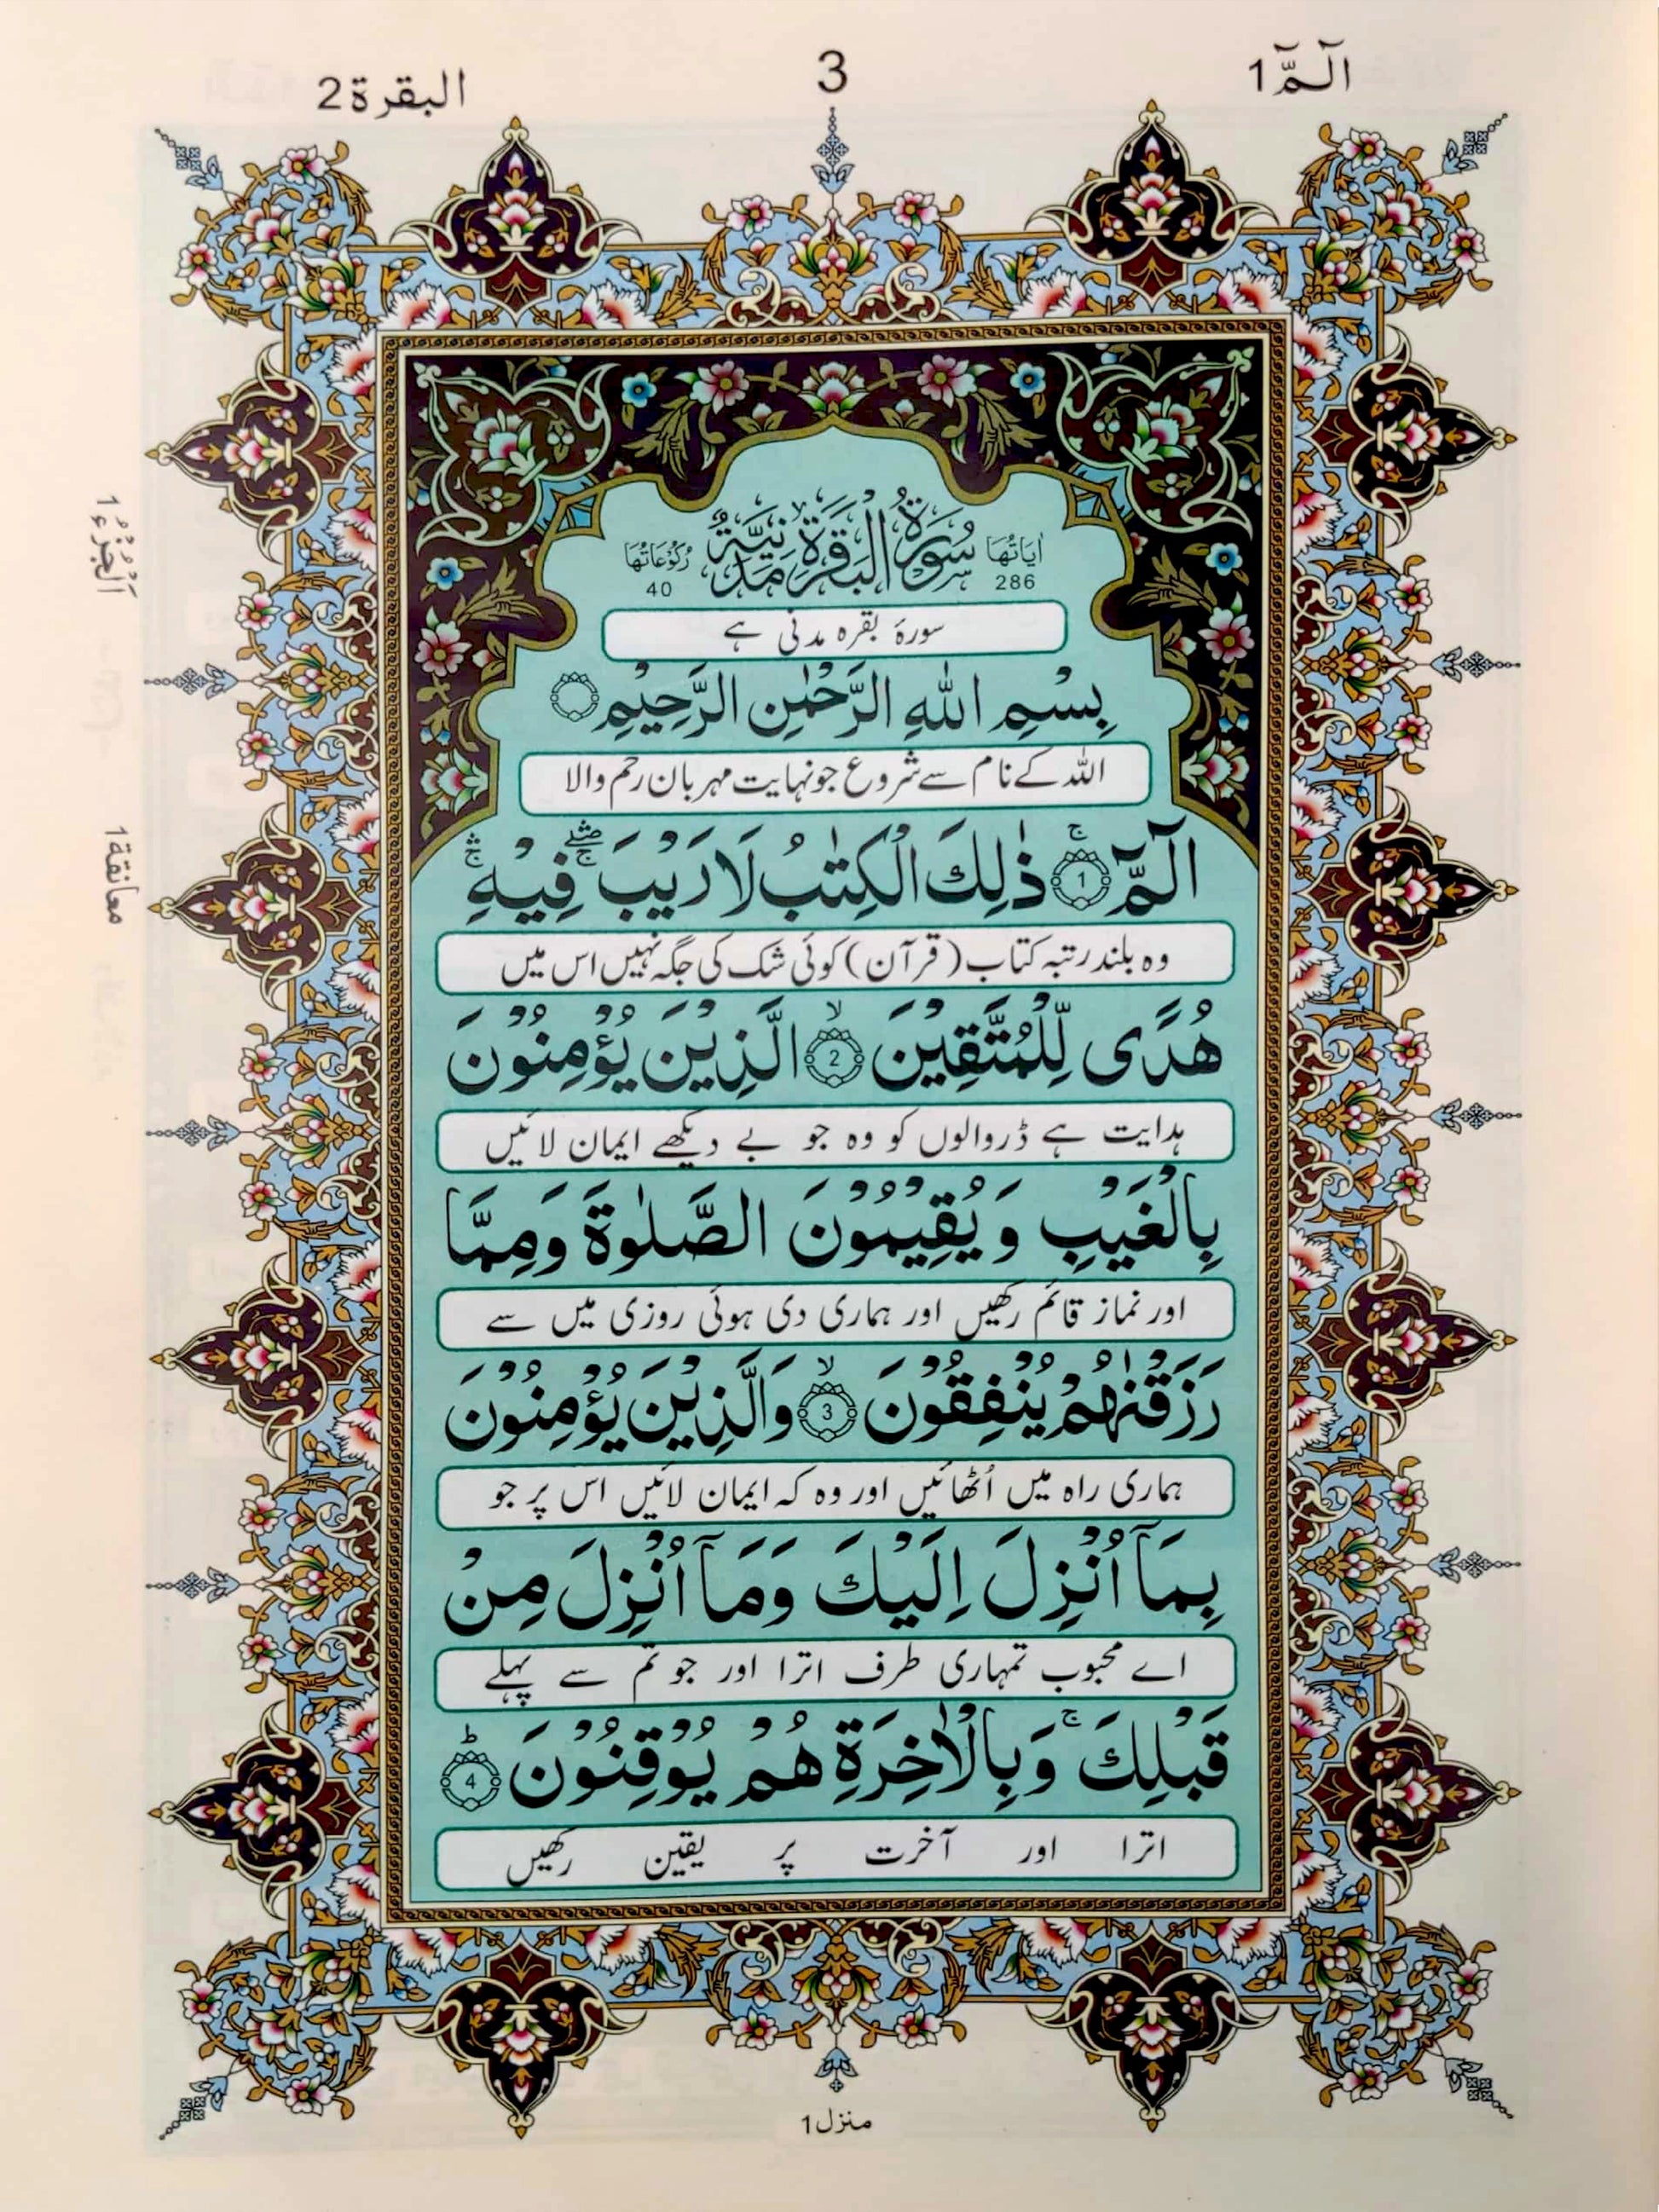 الٓمّٓ 1
3
البقرة 2
اٰيَاتُهَا 286
سُوْرَةُ الْبَقَرَةِ مَدَنِيَّةٌ
رُكُوْعَاتُهَا 40
سورۂ بقرہ مدنی ہے
بِسْمِ اللّٰهِ الرَّحْمٰنِ الرَّحِيْمِ
اللہ کے نام سے شروع جو نہایت مہربان رحم والا
الٓمّٓ ۚ 1 ذٰلِكَ الْكِتٰبُ لَا رَيْبَ ۛۖۚ فِيْهِ ۛۚ
وہ بلند رتبہ کتاب (قرآن) کوئی شک کی جگہ نہیں اس میں
هُدًى لِّلْمُتَّقِيْنَ ۙ 2 الَّذِيْنَ يُؤْمِنُوْنَ
ہدایت ہے ڈر والوں کو وہ جو بے دیکھے ایمان لائیں
بِالْغَيْبِ وَيُقِيْمُوْنَ الصَّلٰوةَ وَمِمَّا
اور نماز قائم رکھیں اور ہماری دی ہوئی روزی میں سے
رَزَقْنٰهُمْ يُنْفِقُوْنَ ۙ 3 وَالَّذِيْنَ يُؤْمِنُوْنَ
ہماری راہ میں اُٹھائیں اور وہ کہ ایمان لائیں اس پر جو
بِمَآ اُنْزِلَ اِلَيْكَ وَمَآ اُنْزِلَ مِنْ
اے محبوب تمہاری طرف اترا اور جو تم سے پہلے
قَبْلِكَ ۚ وَبِالْاٰخِرَةِ هُمْ يُوْقِنُوْنَ ؕ 4
اترا اور آخرت پر یقین رکھیں
اَلْجُزْءُ 1
معانقة 1
منزل 1